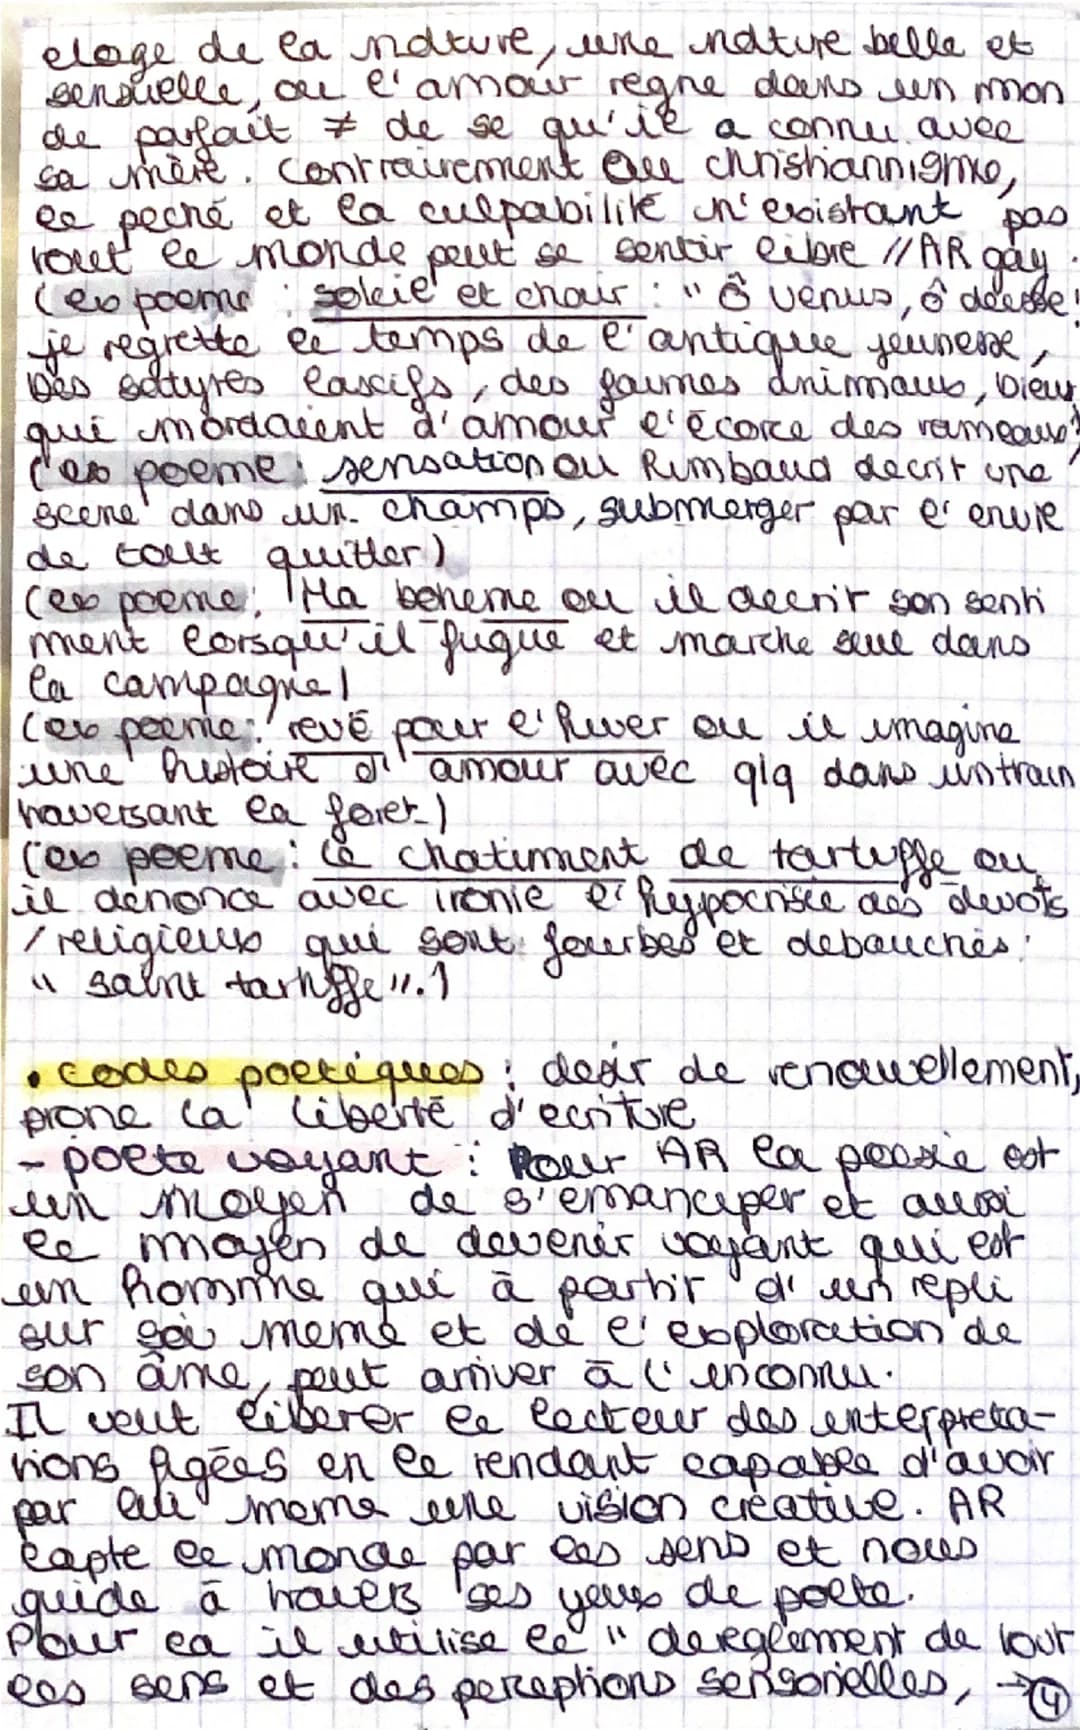 eloge de la nature, une nature belle et
sensuelle, ou l'amour regne dans un mon
de parfait ≠ de se qu'il a connu avec
sa mère. Contrairement au christiannisme,
le peché et la culpabilité n'existant pas
tout le monde peut se sentir libre // AR gay.
(ex poeme : soleil et chair : " Ô Venus, ô déesse!
je regrette le temps de l'antique jeunesse,
Des satyres lascifs, des faunes animaux, Dieux
qui mordaient d'amour l'écorce des rameaux")
(ex poeme : sensation ou Rimbaud decrit une
scene dans un champs, submerger par l'envie
de tout quitter)
(ex poeme : Ma boheme ou il decrit son senti
ment lorsqu'il fugue et marche seul dans
la campagne)
(ex poeme : revé pour l'hiver ou il imagine
une histoire d'amour avec qlq dans un train
traversant la foret)
(ex poeme : le chatiment de tartuffe ou
il denonce avec ironie l'hypocrisie des devots
/ religieux qui sont fourbes et debauchés :
" saint tartuffe ".)
• codes poetiques : desir de renouvellement,
prone la liberté d'ecriture
- poete voyant : Pour AR la poesie est
un moyen de s'emanciper et aussi
le moyen de devenir voyant qui est
un homme qui à partir d'un repli
sur soi meme et de l'exploration de
son âme, peut arriver à l'inconnu.
Il veut liberer le lecteur des interpreta-
tions figées en le rendant capable d'avoir
par lui meme une vision créative. AR
capte le monde par les sens et nous
guide à travers ses yeux de poete.
Pour ca il utilise le " dereglement de tout
les sens et des perceptions sensorielles, → 4